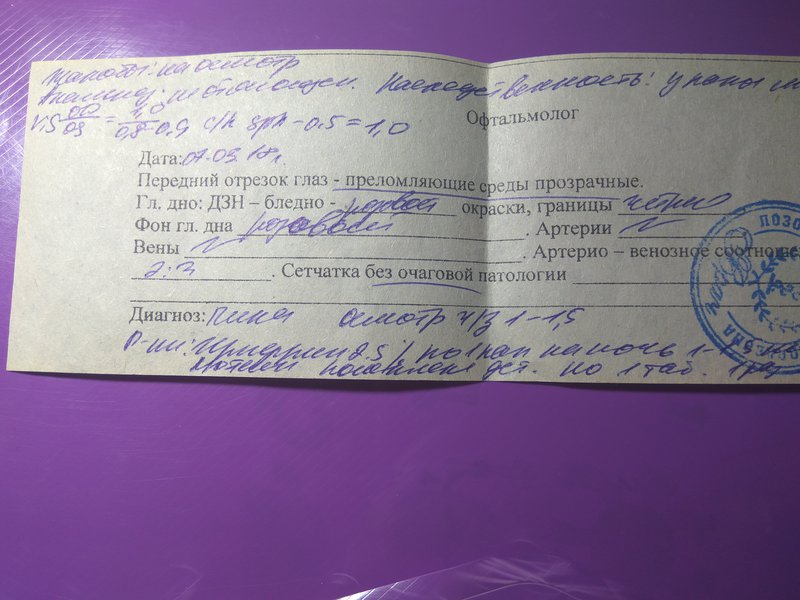 Жалобы: на осмотр
Анамнез: не отягощен. Наследственность: у папы
VIS OD/OS = 1,0/0,8-0,9 с/к sph -0.5 = 1,0
Офтальмолог
Дата: 07.03.18г.
Передний отрезок глаз - преломляющие среды прозрачные.
Гл. дно: ДЗН – бледно - розовой окраски, границы четкие
Фон гл. дна розовый. Артерии N
Вены N. Артерио – венозное соотноше
2:3. Сетчатка без очаговой патологии
Диагноз: осмотр ч/з 1-1,5
Р-ны: 2,5% по 1 кап на ночь 1-1,5
дет. по 1 таб. 1 рд